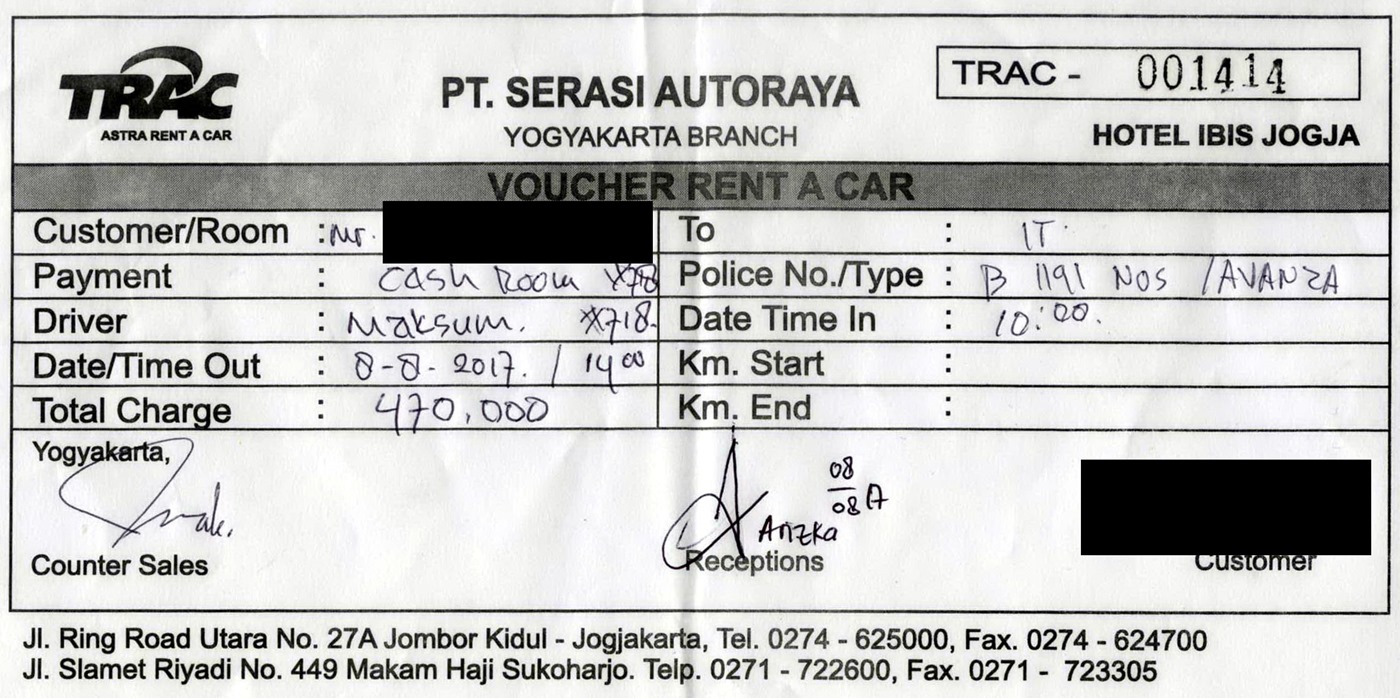 TRAC
ASTRA RENT A CAR
PT. SERASI AUTORAYA
YOGYAKARTA BRANCH
TRAC - 001414
HOTEL IBIS JOGJA
VOUCHER RENT A CAR
Customer/Room : Mr. To : IT
Payment : Cash Room Police No./Type : B 1191 NOS / AVANZA
Driver : Maksum. 718. Date Time In : 10:00.
Date/Time Out : 8-8-2017. / 14 00 Km. Start :
Total Charge : 470.000 Km. End :
Yogyakarta,
08
08
Anzka
Counter Sales Receptions Customer
Jl. Ring Road Utara No. 27A Jombor Kidul - Jogjakarta, Tel. 0274 - 625000, Fax. 0274 - 624700
Jl. Slamet Riyadi No. 449 Makam Haji Sukoharjo. Telp. 0271 - 722600, Fax. 0271 - 723305